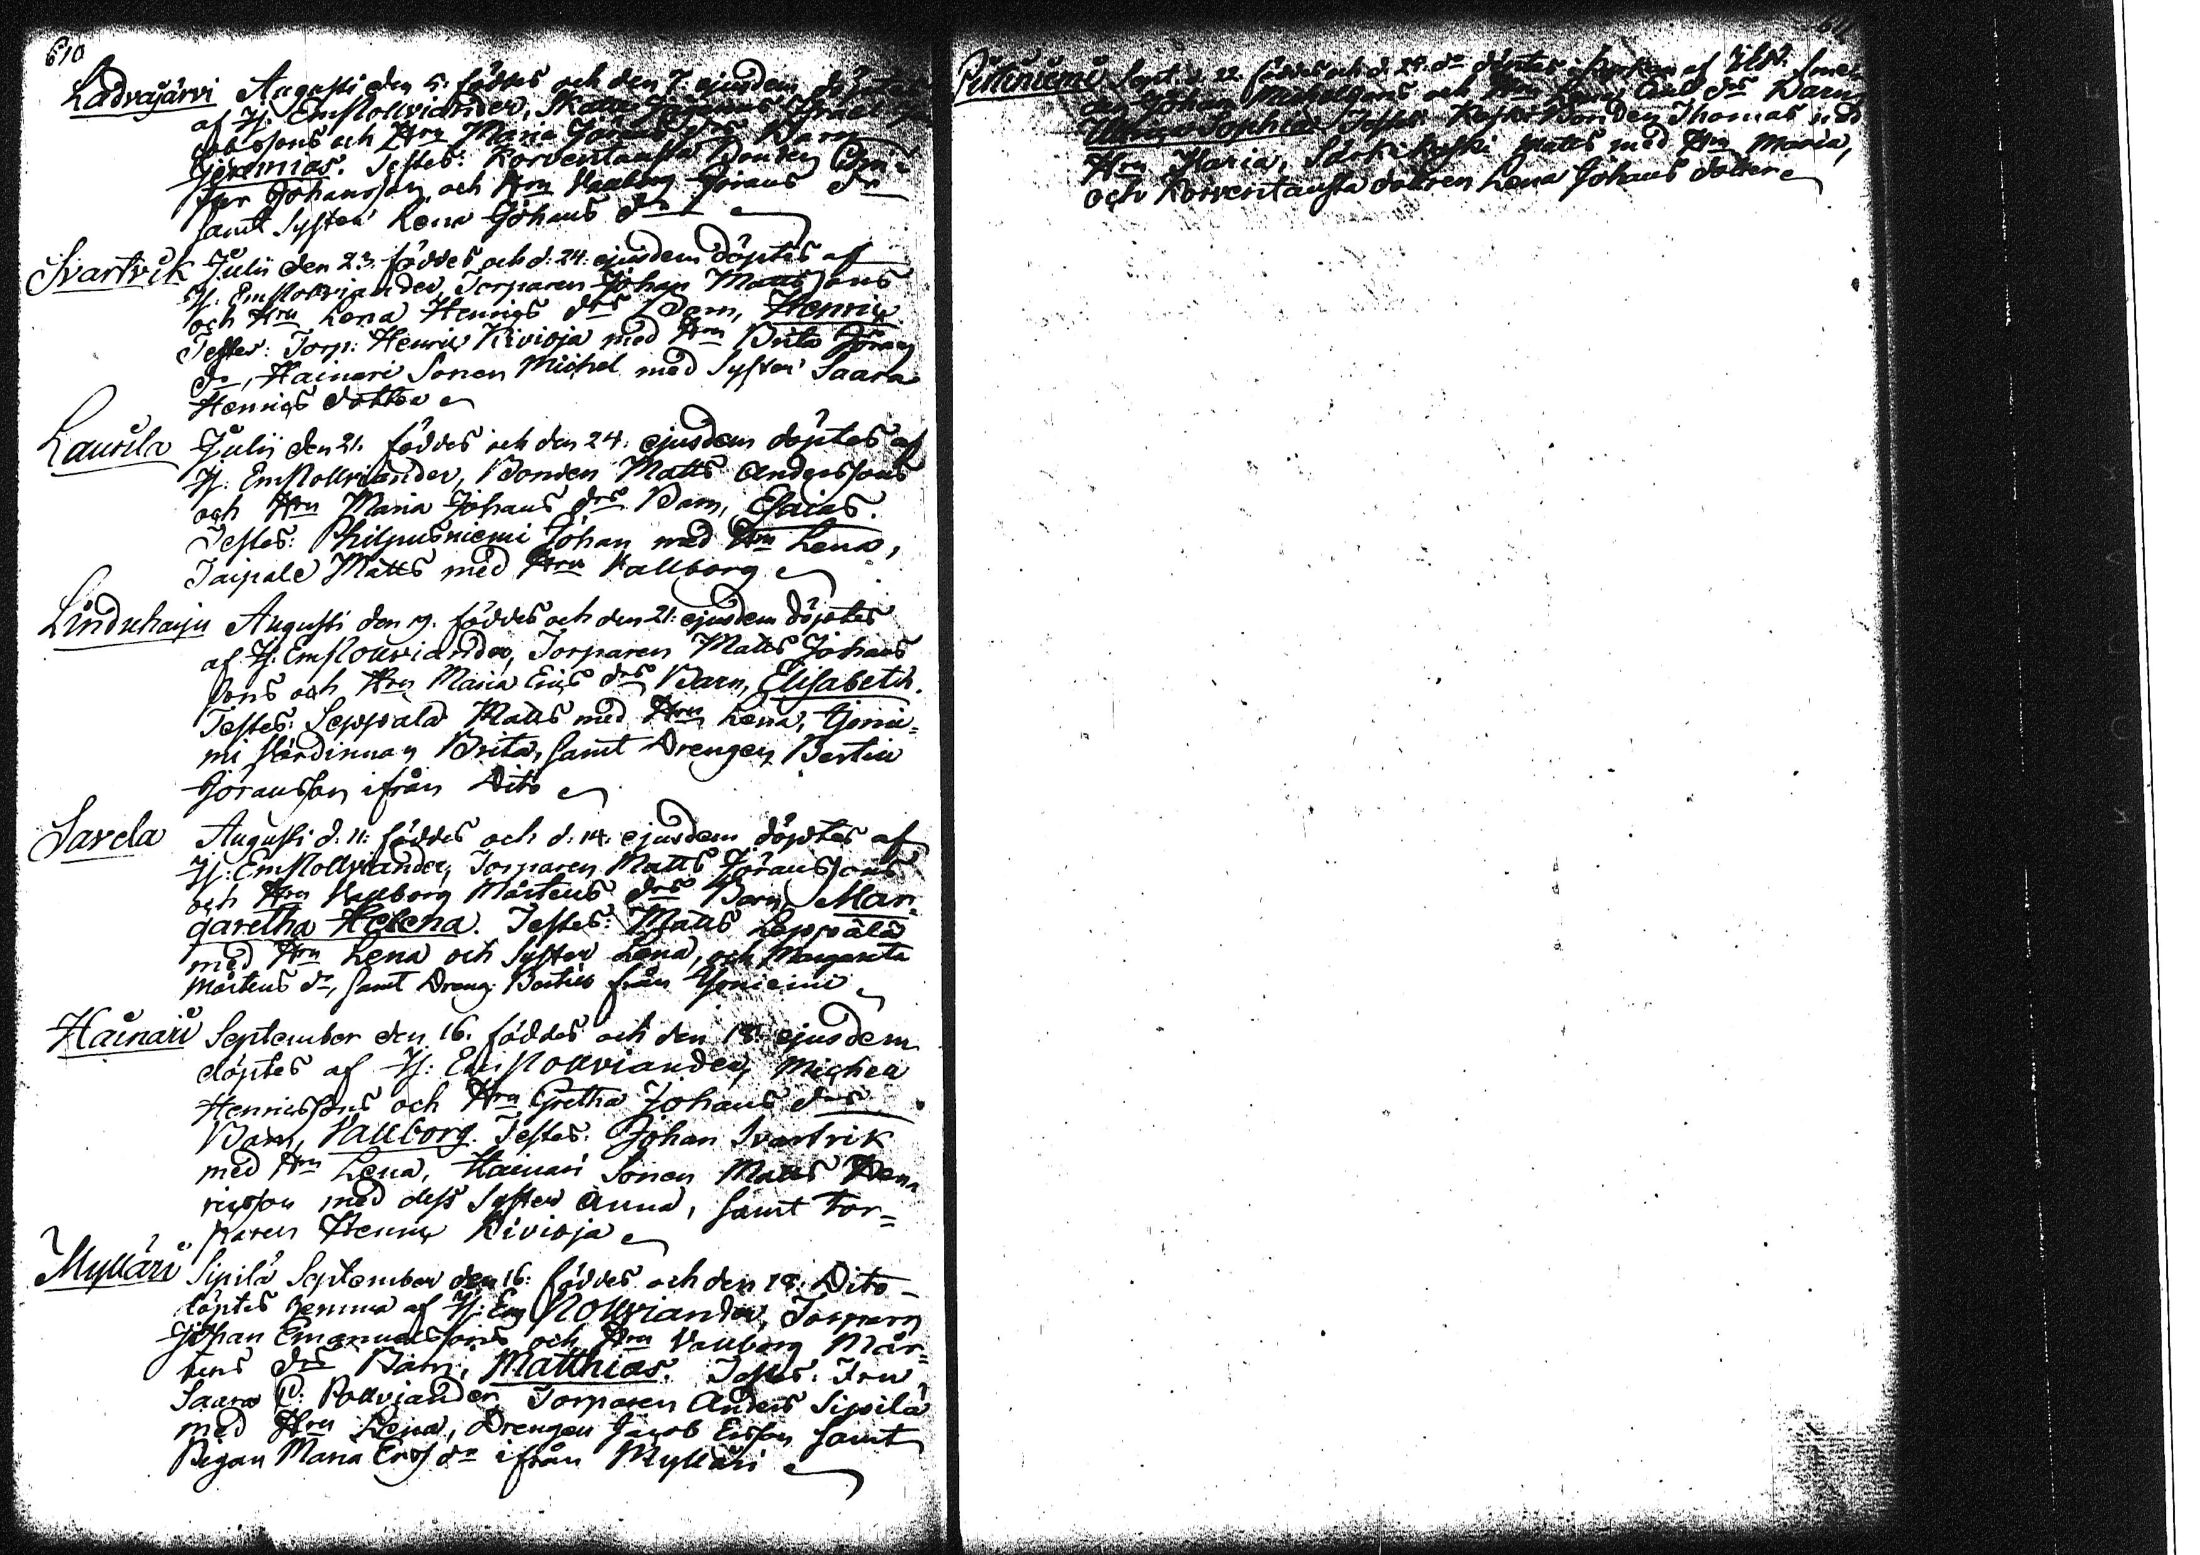 610
Ladvajärvi Augusti den 5. föddes och den 7. ejusdem döptes
af H: Em Pollviander, Skatte
sons och Hru Maria Jörans drs Barn
Jeremias. Testes: Korventausta Bonden
Johansson och Hru Vallborg Jörans dr
samt Syster Lena Johans dr
Svartvik Julii den 23. föddes och d: 24: ejusdem döptes af
H: Em Pollviander, Torparen Johan Mattssons
och Hru Lena Henrics drs Barn, Henric
Testes: Torp: Henric Kivioja med Hru Brita Jörans
dr, Hainari Sonen Michel med Syster Saara
Henrics dotter
Laurila Julii den 21. föddes och den 24. ejusdem döptes af
H: Em Pollviander, Bonden Matts Anderssons
och Hru Maria Johans drs Barn, Esaias.
Testes: Philpusniemi Johan med Hru Lena,
Taipale Matts med Hru Vallborg
Linduharju Augusti den 19. föddes och den 21: ejusdem döptes
af H: Em Pollviander, Torparen Matts Johans
sons och Hru Maria Erics drs Barn, Elisabeth.
Testes: Seppälä Matts med Hru Lena,
mi Värdinnan Brita, samt Drengen Bertil
Göransson ifrån Dito
Savela Augusti d. 11: föddes och d: 14: ejusdem döptes af
H: Em Pollviander, Torparen Matts Jöranssons
och Hru Vallborg Mårtens drs Barn Mar-
garetha Helena. Testes: Matts Seppälä
med Hru Lena och Syster Lena, och Margareta
Mårtens dr, samt Dreng Bertil från
Hainari September den 16. föddes och den 18. ejusdem
döptes af H: Em Pollviander, Michel
Henricssons och Hru Gretha Johans drs
Barn, Vallborg. Testes: Johan Svartvik
med Hru Lena, Hainari Sonen Matts Hen
ricsson med dess Syster Anna, samt Tor=
paren Henric Kivioja
Mylläri Sipilä September den 16: föddes och den 18: Dito
döptes hemma af H: Em Pollviander, Torparen
Johan Emanuelssons och Hru Vallborg Mår=
tens drs Barn, Matthias. Testes: Fru
Saara C: Pollviander, Torparen Anders Sipilä
med Hru Lena, Drengen Jacob Ersson samt
Pigan Maria Ers dr ifrån Mylläri
Sept. d. 22. föddes och d. 24. do döptes af
Johan Michelssons och Hru drs Barn
Sophia. Testes: Bonden Thomas med
Hru Maria, Särkikoski Matts med Hru Maria,
och Korventausta dottren Lena Johans dotter